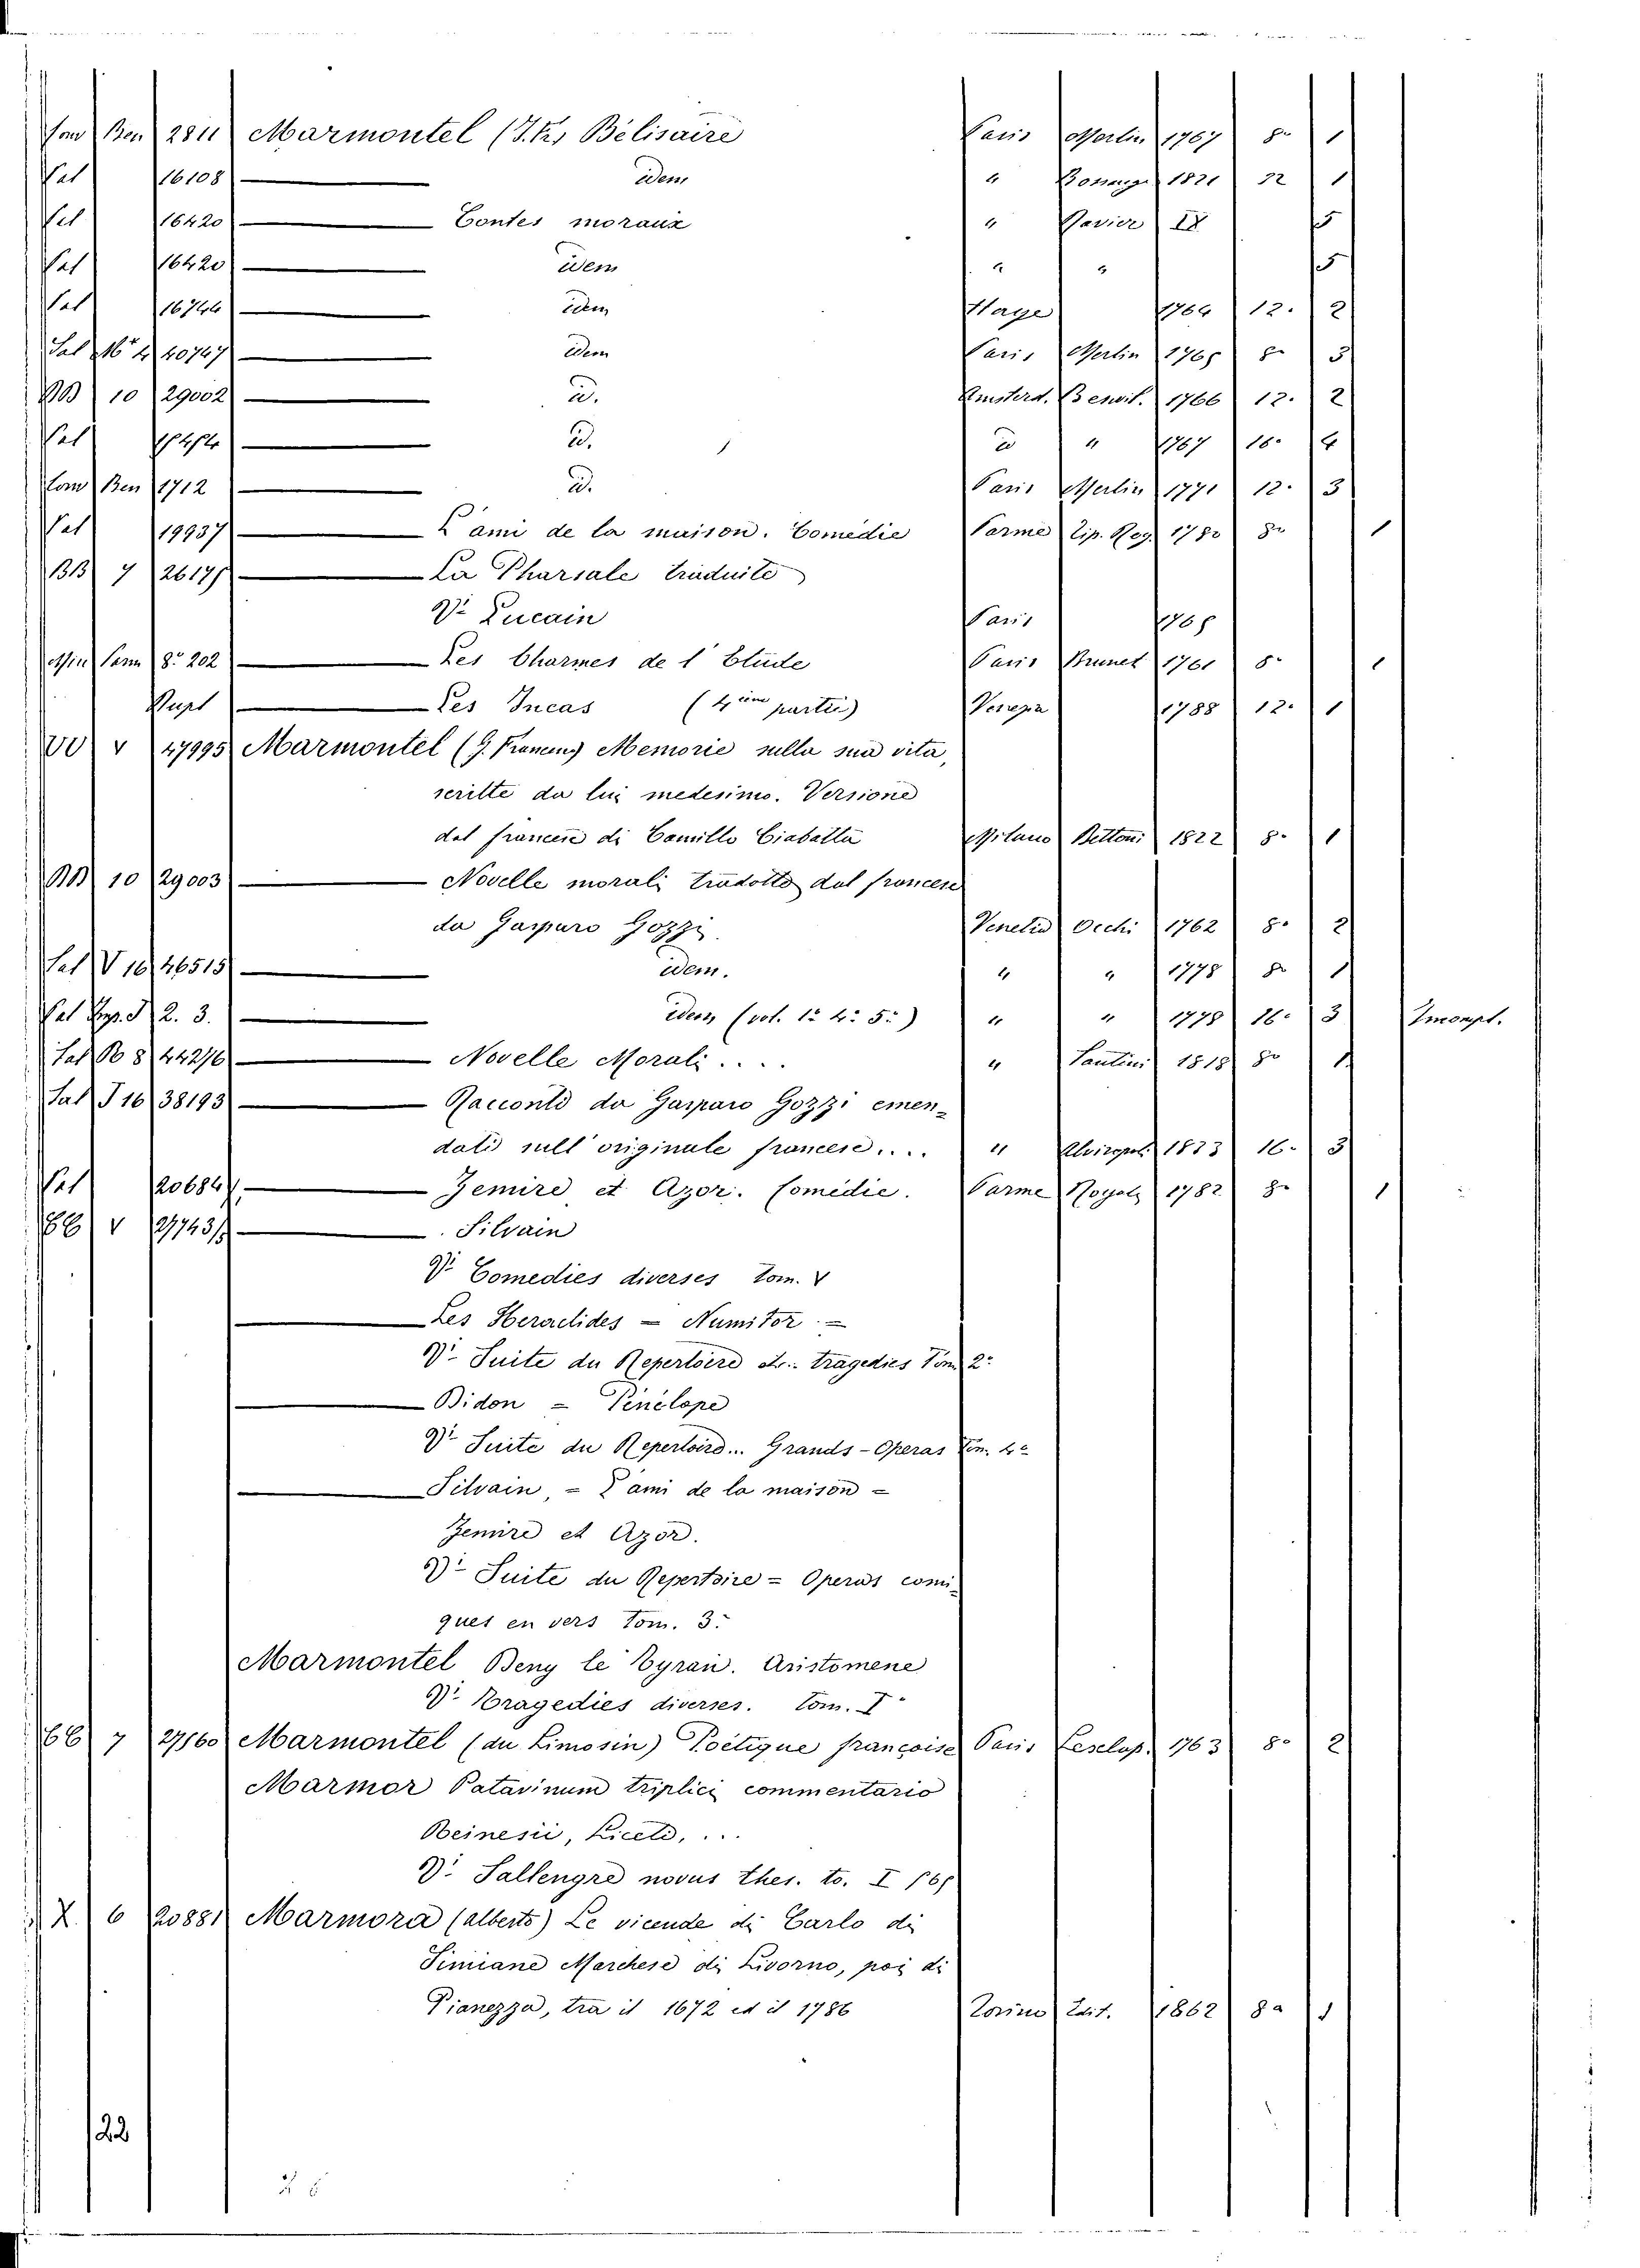 Ben 2811 Marmontel (J. F.) Bélisaire Paris Merlin 1767 8° 1
Sal 16108 idem " Bossange 1821 32 1
Sal 16420 Contes moraux " Xavier IX 5
Sal 16420 idem " " 5
Sal 16746 idem Haye 1764 12. 2
Sal 16 4 40747 idem Paris Merlin 1765 8° 3
BB 10 29002 id. Amsterd. 1766 12. 2
Sal id. id " 1767 18. 4
Com Ben 1712 id. Paris Merlin 1771 12. 3
Sal 19937 L'ami de la maison. Comédie Parme Tip. Reg. 1782 8° 1
BB 7 2617 La Pharsale traduite
V. Lucain Paris 1765
Min 8° 202 Les Charmes de l'Etude Paris Brunet 1761 8° 1
Les Incas (4 ème partie) 1788 12. 1
V 47995 Marmontel (G. Francesco) Memorie sulla sua vita,
scritte da lui medesimo. Versione
dal francese di Camillo Ciabatta Milano Bettoni 1822 8. 1
BB 10 29003 Novelle morali tradotte dal francese
da Gasparo Gozzi. Venetia Occhi 1762 8. 2
Sal V 16 46515 idem. " " 1778 8° 1
Sal 2. 3. idem (vol. 1° 4° 5°) " " 1778 16. 3 Imcompl.
Sal 8 44276 Novelle Morali .... " Santini 1818 8° 1.
Sal J 16 38193 Racconti da Gasparo Gozzi emen-
dati sull'originale francese.... " Alvisopoli 1823 16. 3
Sal 20684 Zemire et Azor. Comédie. Parme Royale 1782 8° 1
V 27743 Silvain
V. Comedies diverses Tom. V
Les Heraclides = Numitor =
V. Suite du Repertoire etc. tragedies Tom 2°
Didon = Pénélope
V. Suite du Repertoire... Grands-Operas Tom. 4°
Silvain, = L'ami de la maison =
Zemire et Azor.
V. Suite du Repertoire = Operas comi-
ques en vers Tom. 3.
Marmontel Deny le Tyran. Aristomene
V. Tragedies diverses. Tom. I
7 27160 Marmontel (du Limosin) Poétique françoise Paris Lesclap. 1763 8° 2
Marmor Patavinum triplici commentario
Reinesii, Liceti, ...
V. Sallengre novus thes. to. I 161
X. 6 20881 Marmora (alberto) Le vicende di Carlo di
Simiane Marchese di Livorno, poi di
Pianezza, tra il 1672 ed il 1786 Torino Edit. 1862 8° 1
22